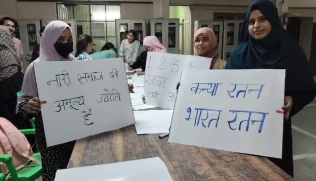 नारी समाज की
अमूल्य ज्योति
है
1 2 3 4
कन्या रतन
भारत रतन